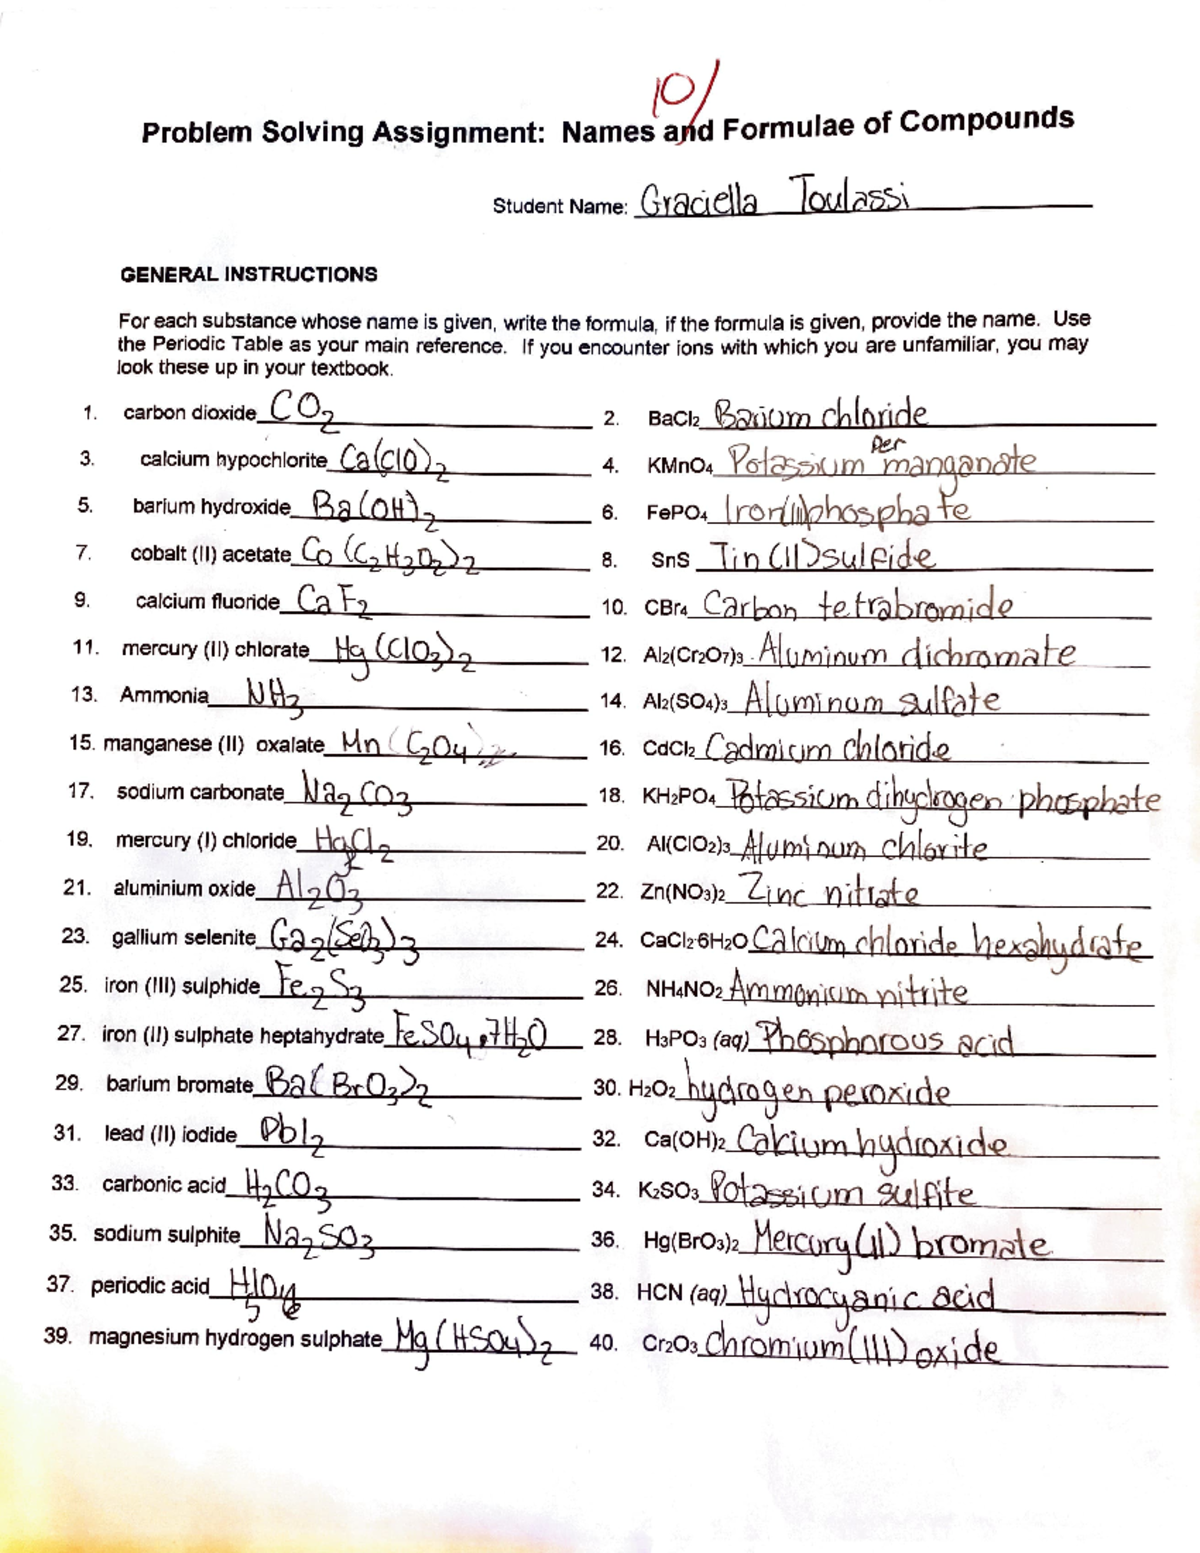 10/
Problem Solving Assignment: Names and Formulae of Compounds
Student Name: Graciella Toulassi
GENERAL INSTRUCTIONS
For each substance whose name is given, write the formula, if the formula is given, provide the name. Use
the Periodic Table as your main reference. If you encounter ions with which you are unfamiliar, you may
look these up in your textbook.
1. carbon dioxide CO2 2. BaCl2 Barium chloride
3. calcium hypochlorite Ca(ClO)2 4. KMnO4 Potassium permanganate
5. barium hydroxide Ba(OH)2 6. FePO4 Iron(III)phosphate
7. cobalt (II) acetate Co(C2H3O2)2 8. SnS Tin(II)sulfide
9. calcium fluoride CaF2 10. CBr4 Carbon tetrabromide
11. mercury (II) chlorate Hg(ClO3)2 12. Al2(Cr2O7)3 Aluminum dichromate
13. Ammonia NH3 14. Al2(SO4)3 Aluminum sulfate
15. manganese (II) oxalate Mn C2O4 16. CdCl2 Cadmium chloride
17. sodium carbonate Na2CO3 18. KH2PO4 Potassium dihydrogen phosphate
19. mercury (I) chloride Hg2Cl2 20. Al(ClO2)3 Aluminum chlorite
21. aluminium oxide Al2O3 22. Zn(NO3)2 Zinc nitrate
23. gallium selenite Ga2(SeO3)3 24. CaCl2·6H2O Calcium chloride hexahydrate
25. iron (III) sulphide Fe2S3 26. NH4NO2 Ammonium nitrite
27. iron (II) sulphate heptahydrate FeSO4•7H2O 28. H3PO3 (aq) Phosphorous acid
29. barium bromate Ba(BrO3)2 30. H2O2 hydrogen peroxide
31. lead (II) iodide PbI2 32. Ca(OH)2 Calcium hydroxide
33. carbonic acid H2CO3 34. K2SO3 Potassium sulfite
35. sodium sulphite Na2SO3 36. Hg(BrO3)2 Mercury(II) bromate
37. periodic acid H5IO6 38. HCN (aq) Hydrocyanic acid
39. magnesium hydrogen sulphate Mg(HSO4)2 40. Cr2O3 chromium(III) oxide